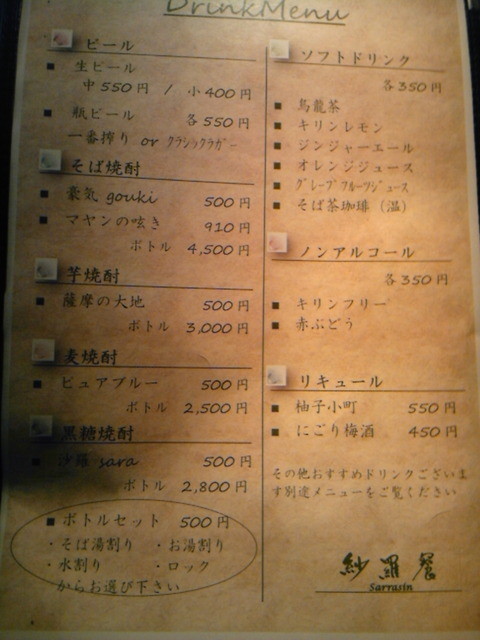 DrinkMenu
ビール
■ 生ビール
中 550円 / 小 400円
■ 瓶ビール 各 550円
一番搾り or クラシックラガー
そば焼酎
■ 豪気 gouki 500円
■ マヤンの呟き 910円
ボトル 4,500円
芋焼酎
■ 薩摩の大地 500円
ボトル 3,000円
麦焼酎
■ ピュアブルー 500円
ボトル 2,500円
黒糖焼酎
沙羅 sara 500円
ボトル 2,800円
■ ボトルセット 500円
・そば湯割り ・お湯割り
・水割り ・ロック
からお選び下さい
ソフトドリンク
各350円
■ 烏龍茶
■ キリンレモン
■ ジンジャーエール
■ オレンジジュース
■ グレープフルーツジュース
■ そば茶珈琲（温）
ノンアルコール
各350円
■ キリンフリー
■ 赤ぶどう
リキュール
■ 柚子小町 550円
■ にごり梅酒 450円
その他おすすめドリンクございま
す別途メニューをご覧ください
紗羅餐
Sarrasin